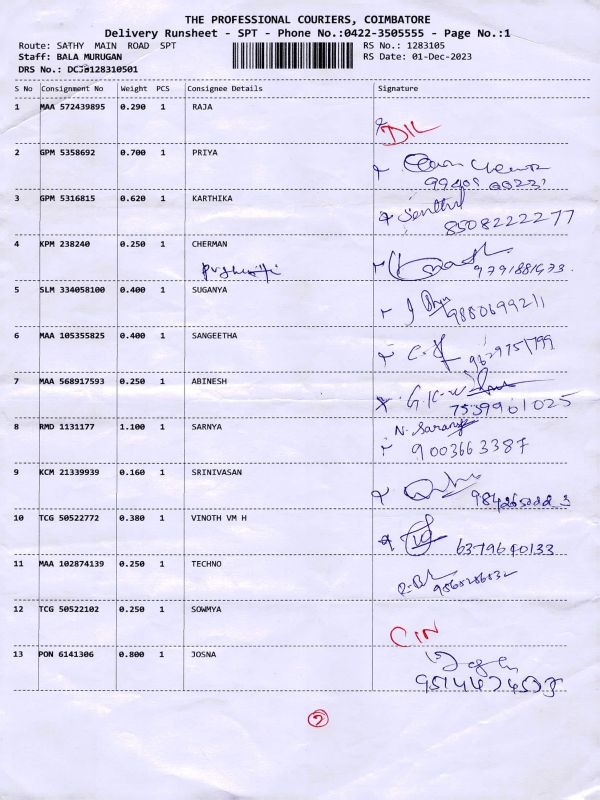 THE PROFESSIONAL COURIERS, COIMBATORE
Delivery Runsheet - SPT - Phone No.:0422-3505555 - Page No.:1
Route: SATHY MAIN ROAD SPT RS No.: 1283105
Staff: BALA MURUGAN RS Date: 01-Dec-2023
DRS No.: DCJB128310501
S No Consignment No Weight PCS Consignee Details Signature
1 MAA 572439895 0.290 1 RAJA
DIL
2 GPM 5358692 0.700 1 PRIYA
3 GPM 5316815 0.620 1 KARTHIKA
Senthil
8508222277
4 KPM 238240 0.250 1 CHERMAN
5 SLM 334058100 0.400 1 SUGANYA
9880699211
6 MAA 105355825 0.400 1 SANGEETHA
7 MAA 568917593 0.250 1 ABINESH
7539961025
8 RMD 1131177 1.100 1 SARNYA
N. Saranya
9003663387
9 KCM 21339939 0.160 1 SRINIVASAN
10 TCG 50522772 0.380 1 VINOTH VM H
6379640133
11 MAA 102874139 0.250 1 TECHNO
12 TCG 50522102 0.250 1 SOWMYA
CIN
13 PON 6141306 0.800 1 JOSNA